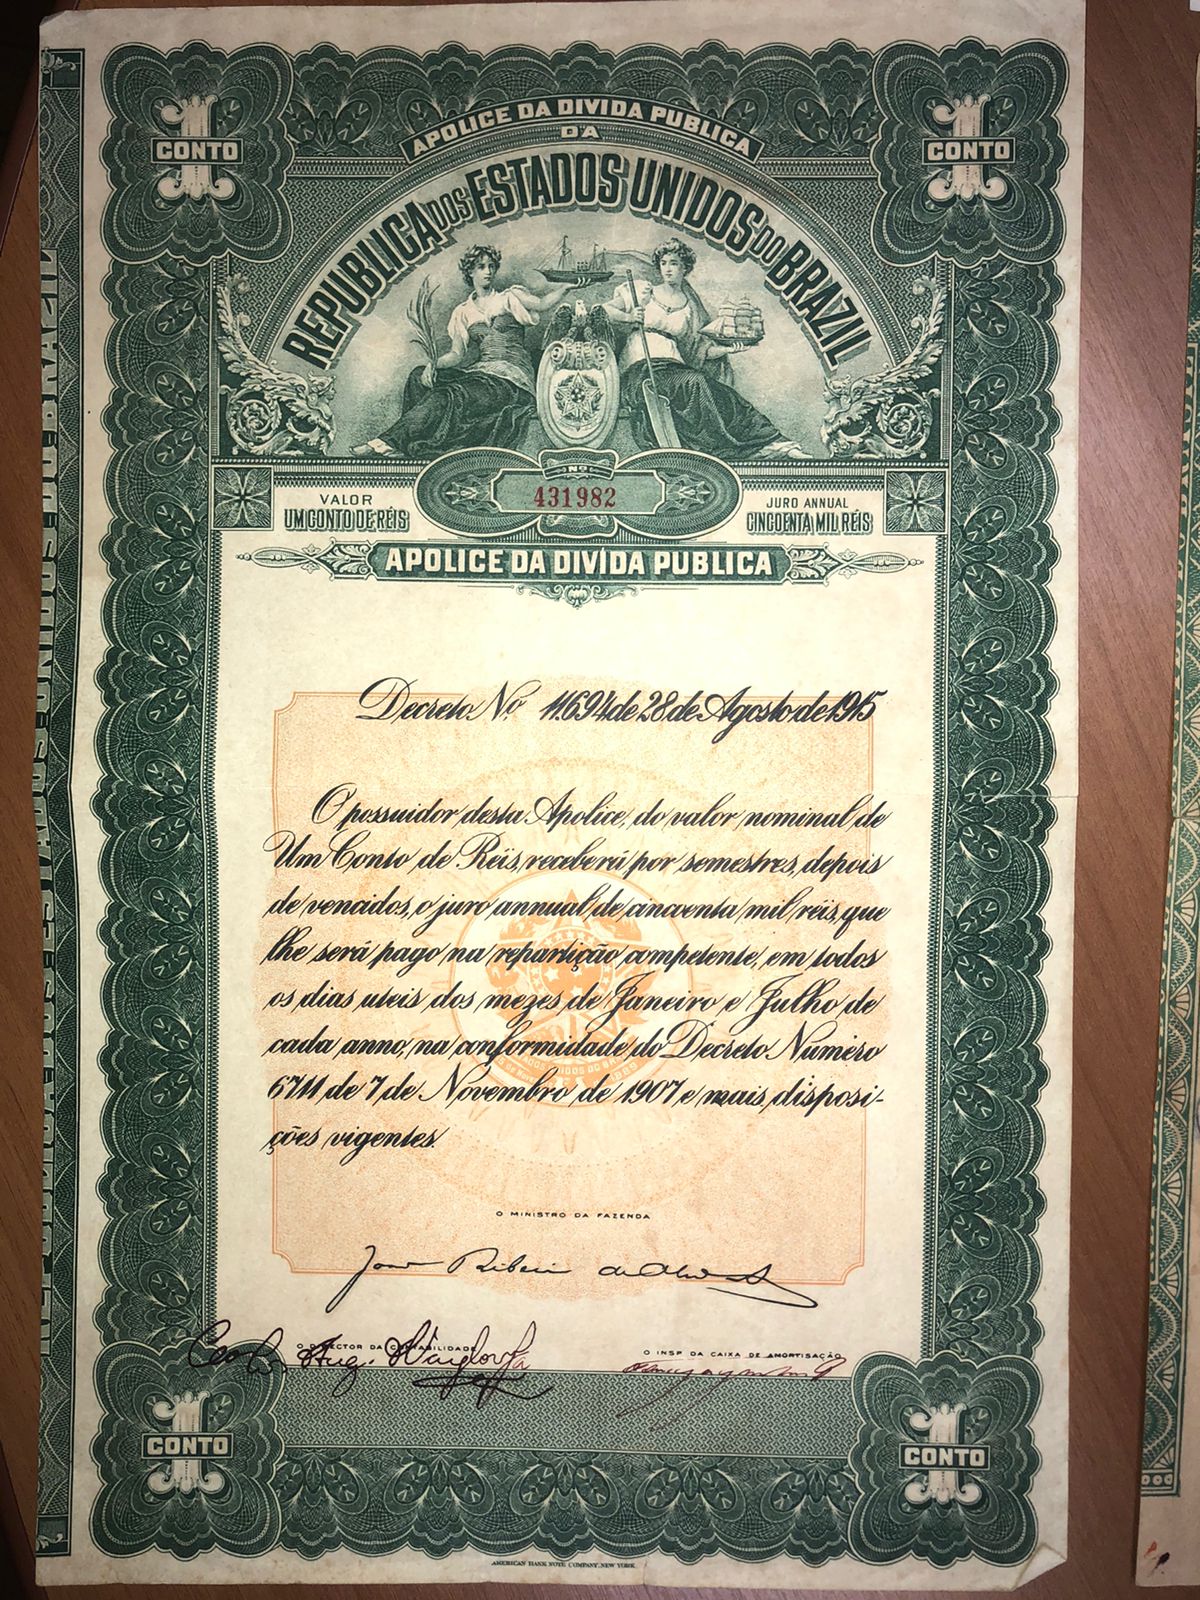 APOLICE DA DIVIDA PUBLICA
DA
REPUBLICA DOS ESTADOS UNIDOS DO BRAZIL
1 CONTO
1 CONTO
Nº
431982
VALOR
UM CONTO DE RÉIS
JURO ANNUAL
CINCOENTA MIL RÉIS
APOLICE DA DIVIDA PUBLICA
Decreto Nº 11.694 de 28 de Agosto de 1915
O possuidor desta Apolice, do valor nominal de
Um Conto de Réis, receberá por semestres, depois
de vencidos, o juro annual de cincoenta mil réis, que
lhe será pago na repartição competente, em todos
os dias uteis dos mezes de Janeiro e Julho de
cada anno, na conformidade do Decreto Numero
6711 de 7 de Novembro de 1907 e mais disposi-
ções vigentes.
O MINISTRO DA FAZENDA
O DIRECTOR DA CONTABILIDADE
O INSP DA CAIXA DE AMORTISAÇÃO
1 CONTO
1 CONTO
AMERICAN BANK NOTE COMPANY, NEW YORK